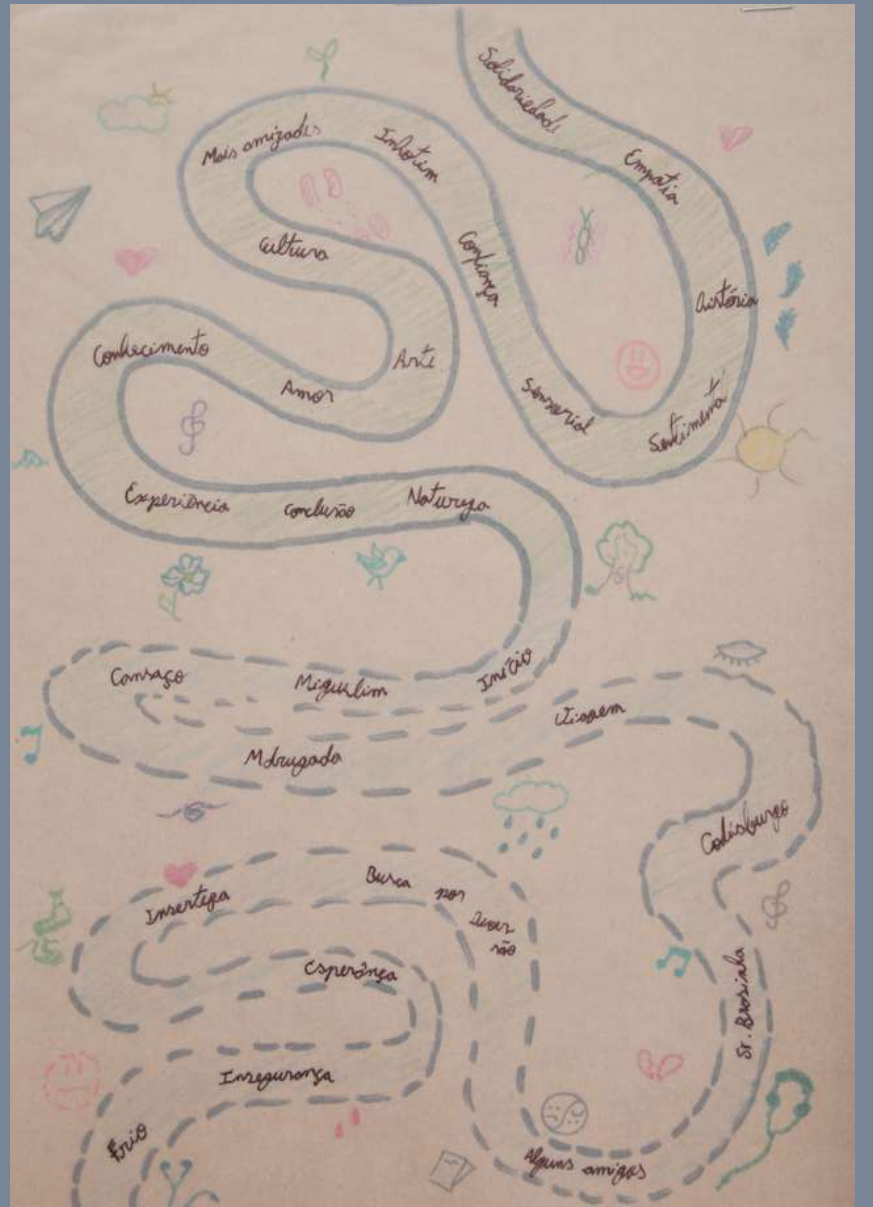 Solidariedade
Empatia
História
Sentimento
Sensorial
Confiança
Inhotim
Mais amizades
Cultura
Arte
Amor
Conhecimento
Experiência
Conclusão
Natureza
Início
Miguilim
Cansaço
Mdrugada
Viagem
Codisburgo
Sr. Brasinha
Alguns amigos
Busca por
diver
são
Inserteza
Esperança
Insegurança
Frio